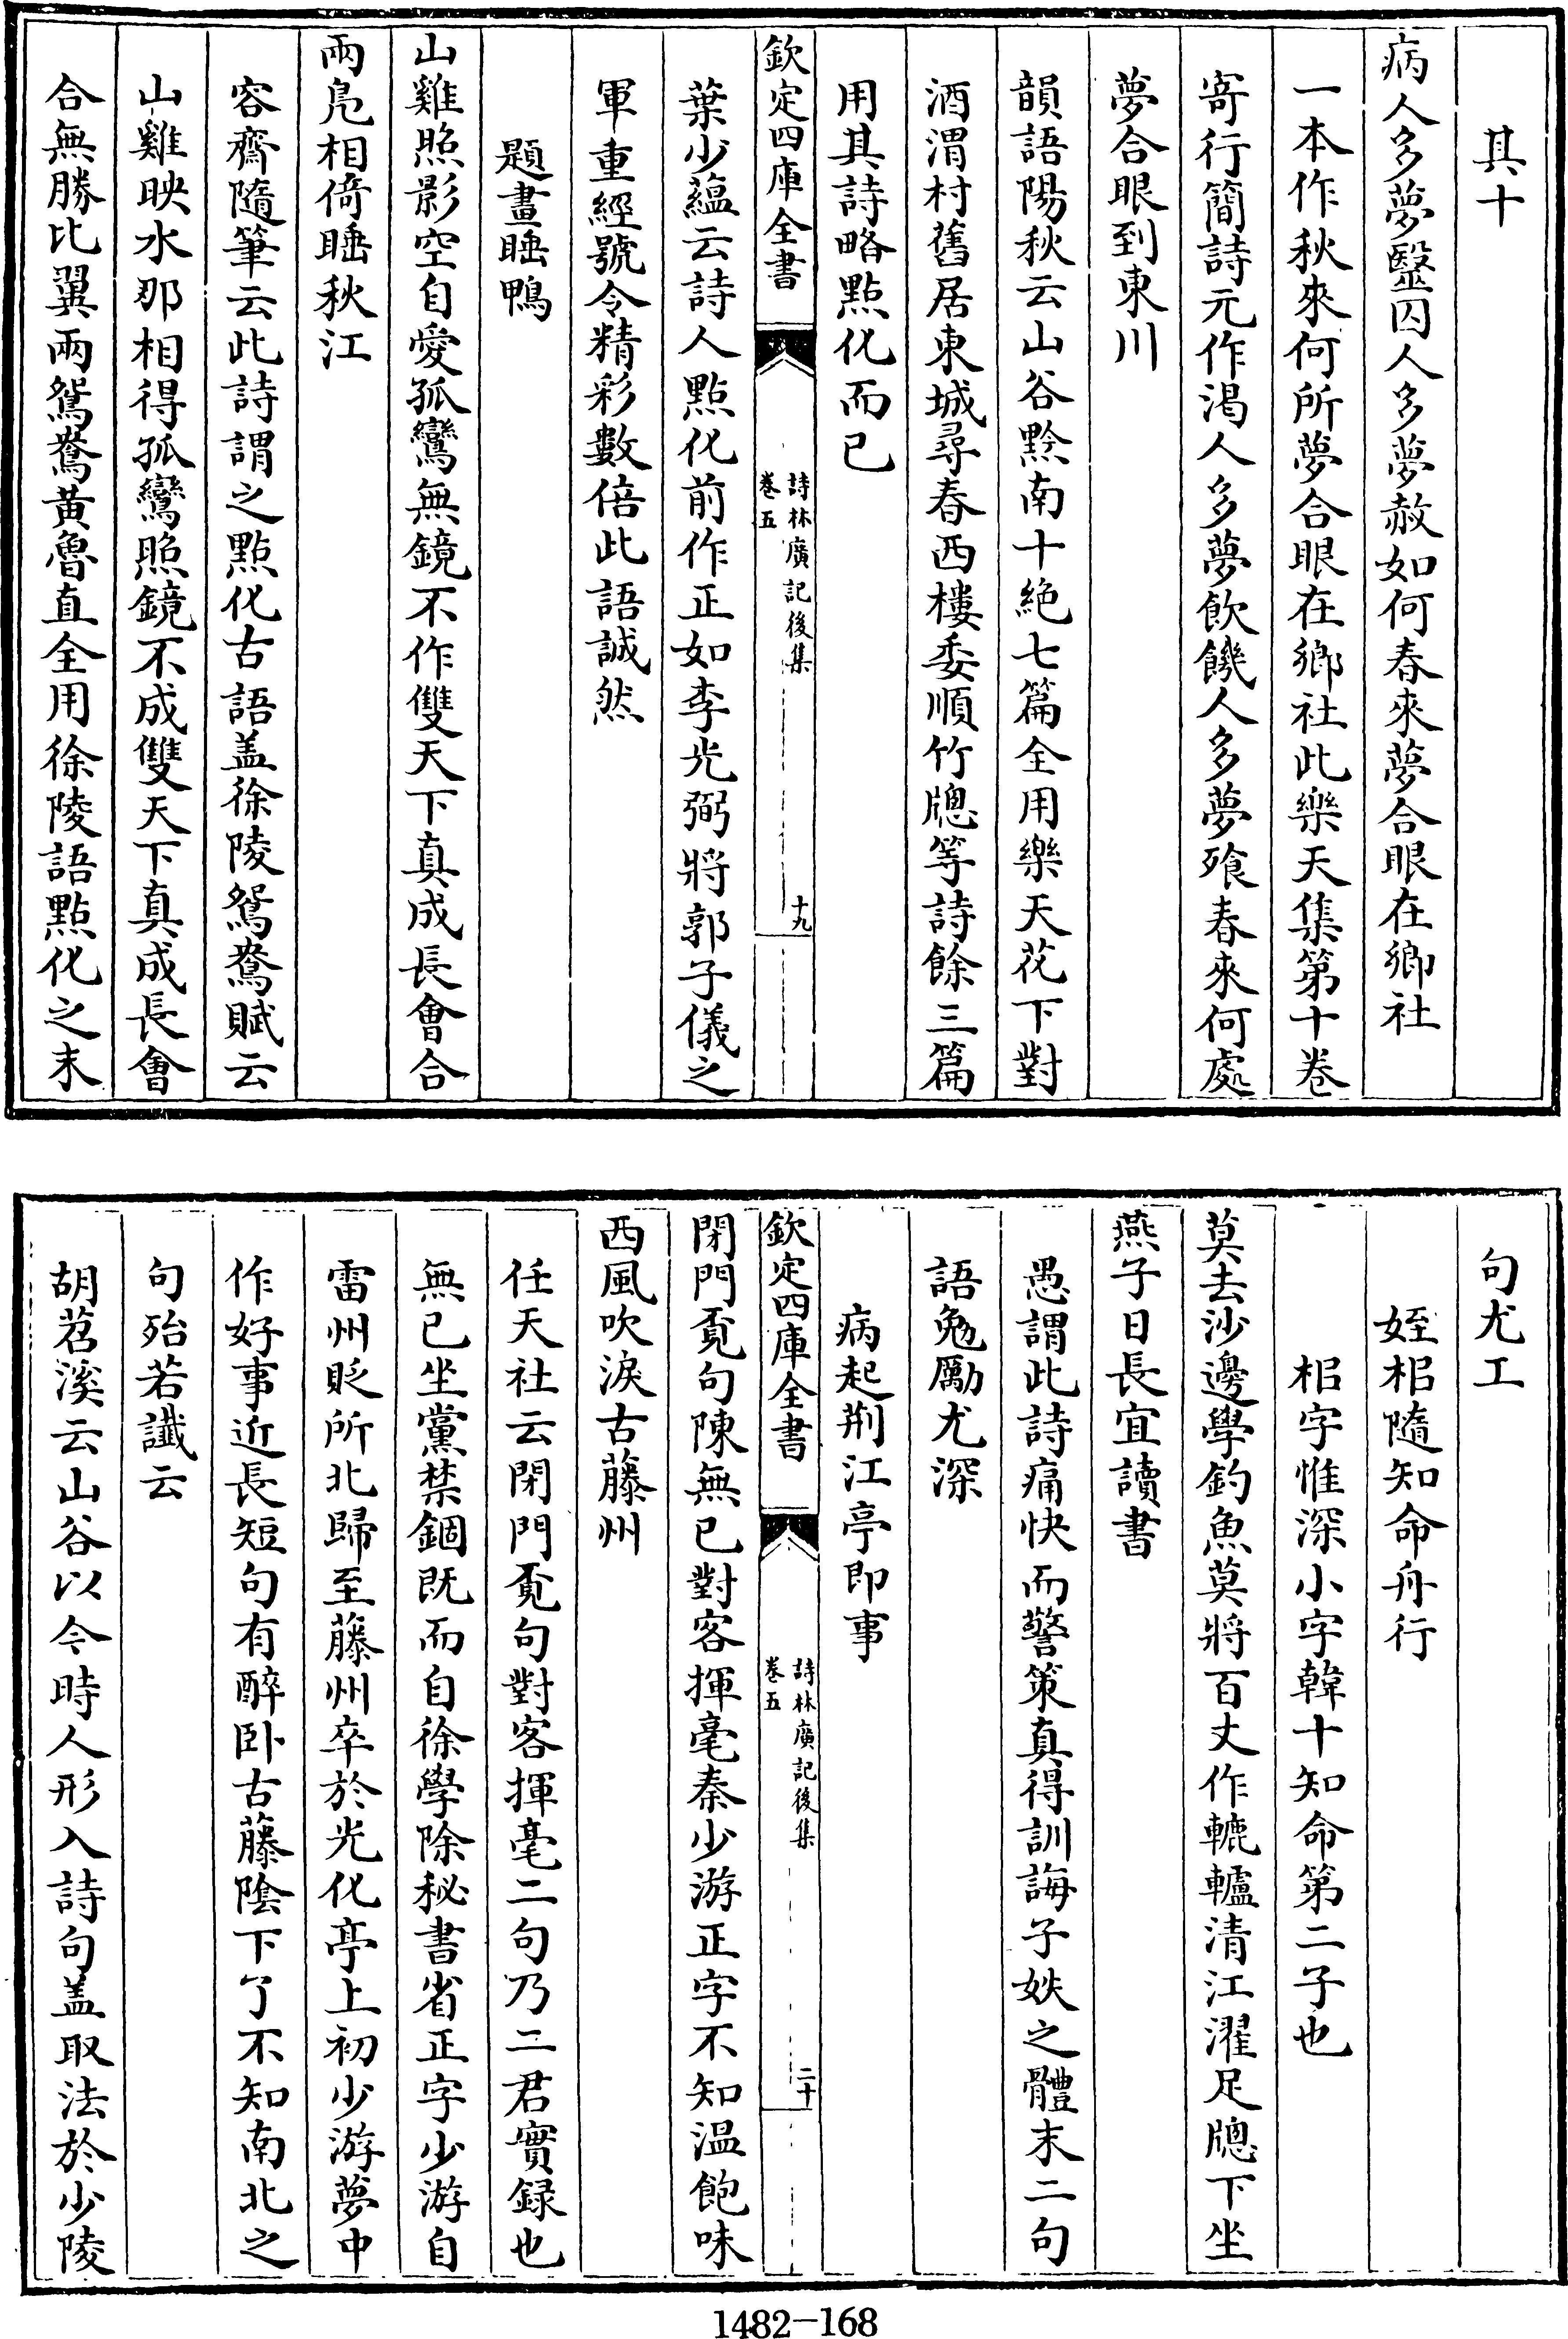 其十
病人多夢毉囚人多夢赦如何春來夢合眼在鄉社
一本作秋來何所夢合眼在鄉社此樂天集第十卷
寄行簡詩元作渴人多夢飲饑人多夢飱春來何處
夢合眼到東川
韻語陽秋云山谷黔南十絶七篇全用樂天花下對
酒渭村舊居東城尋春西樓委順竹牕等詩餘三篇
用其詩略點化而已
欽定四庫全書
詩林廣記後集
卷五
十九
葉少藴云詩人點化前作正如李光弼將郭子儀之
軍重經號令精彩數倍此語誠然
題畫睡鴨
山雞照影空自愛孤鸞無鏡不作雙天下真成長會合
兩鳬相倚睡秋江
容齋隨筆云此詩謂之點化古語盖徐陵鴛鴦賦云
山雞映水那相得孤鸞照鏡不成雙天下真成長會
合無勝比翼兩鴛鴦黄魯直全用徐陵語點化之末
句尤工
姪梠隨知命舟行
梠字惟深小字韓十知命第二子也
莫去沙邊學釣魚莫將百丈作轆轤清江濯足牕下坐
燕子日長宜讀書
愚謂此詩痛快而警策真得訓誨子姪之體末二句
語勉勵尤深
病起荆江亭即事
欽定四庫全書
詩林廣記後集
卷五
二十
閉門覔句陳無已對客揮毫秦少游正字不知温飽味
西風吹淚古藤州
任天社云閉門覔句對客揮毫二句乃二君實録也
無已坐黨禁錮既而自徐學除秘書省正字少游自
雷州貶所北歸至藤州卒於光化亭上初少游夢中
作好事近長短句有醉卧古藤隂下了不知南北之
句殆若讖云
胡苕溪云山谷以今時人形入詩句盖取法於少陵
1482-168